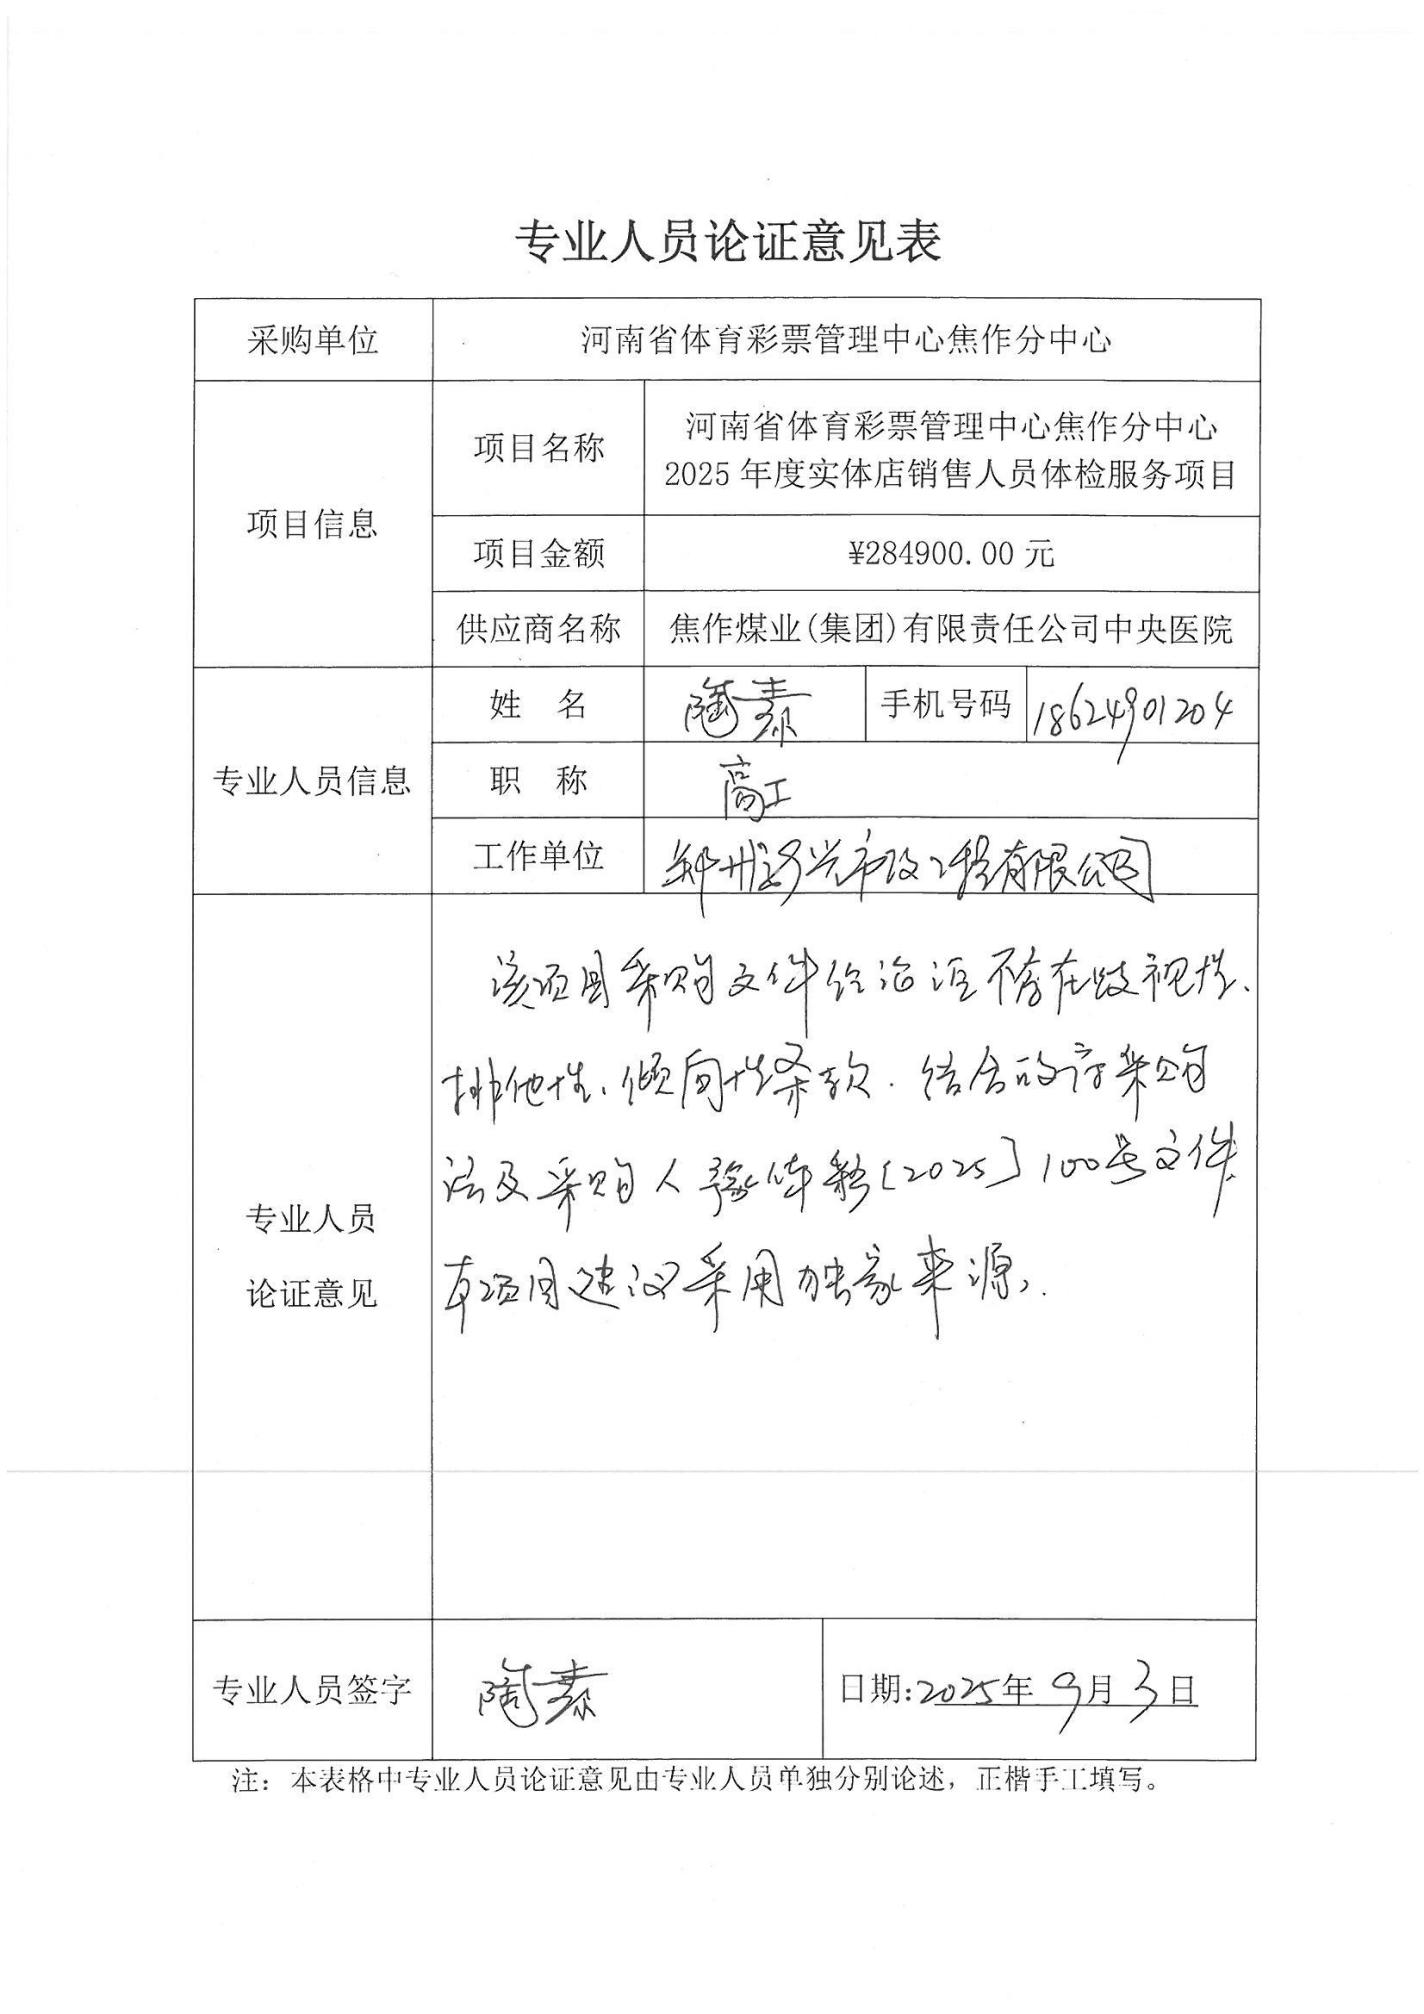 专业人员论证意见表
采购单位
河南省体育彩票管理中心焦作分中心
项目信息
项目名称
河南省体育彩票管理中心焦作分中心
2025年度实体店销售人员体检服务项目
项目金额
¥284900.00元
供应商名称
焦作煤业(集团)有限责任公司中央医院
专业人员信息
姓 名
陶泰
手机号码
18624901204
职 称
高工
工作单位
郑州 兴市政工程有限公司
专业人员
论证意见
该项目采购文件经论证不存在歧视性、
排他性、倾向性条款. 结合政府采购
法及采购人豫体彩〔2025〕100号文件
本项目建议采用独家来源.
专业人员签字
陶泰
日期:2025年9月3日
注：本表格中专业人员论证意见由专业人员单独分别论述，正楷手工填写。